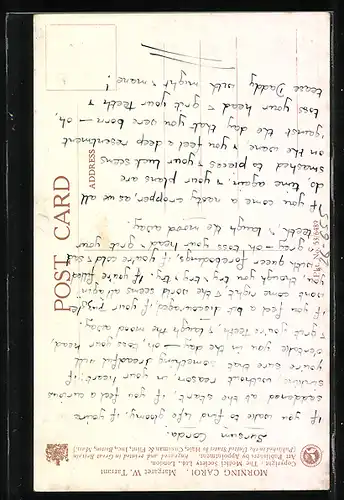 MORNING CAROL. Margaret W. Tarrant
Copyright. The Medici Society Ltd., London.
Art Publishers by Appointment. Engraved and Printed in Great Britain
(Published in the United States by Hale, Cushman & Flint, Inc., Boston, Mass.)
POST CARD
ADDRESS
Sursum Corda.
If you wake to find you're gloomy, if you're
saddened at the start, if you feel a curious
sinking without reason in your heart, if
you're sure that something dreadful will
overtake you in the day – oh, toss your head,
& grit your teeth, & laugh the mood away!
If you feel a bit discouraged, if your puzzles
won't come right & the world seems all
though you try & try & try, if you're filled
with queer forebodings, if you're cold &
grey – oh toss your head & grit your
teeth & laugh the mood away.
If you come a nasty cropper, as we all
do time again, & your plans are
smashed to pieces & your luck seems
on the wane & you feel a deep resentment
'gainst the day that you were born – oh,
toss your head & grit your teeth &
tease Daddy with might & mane!